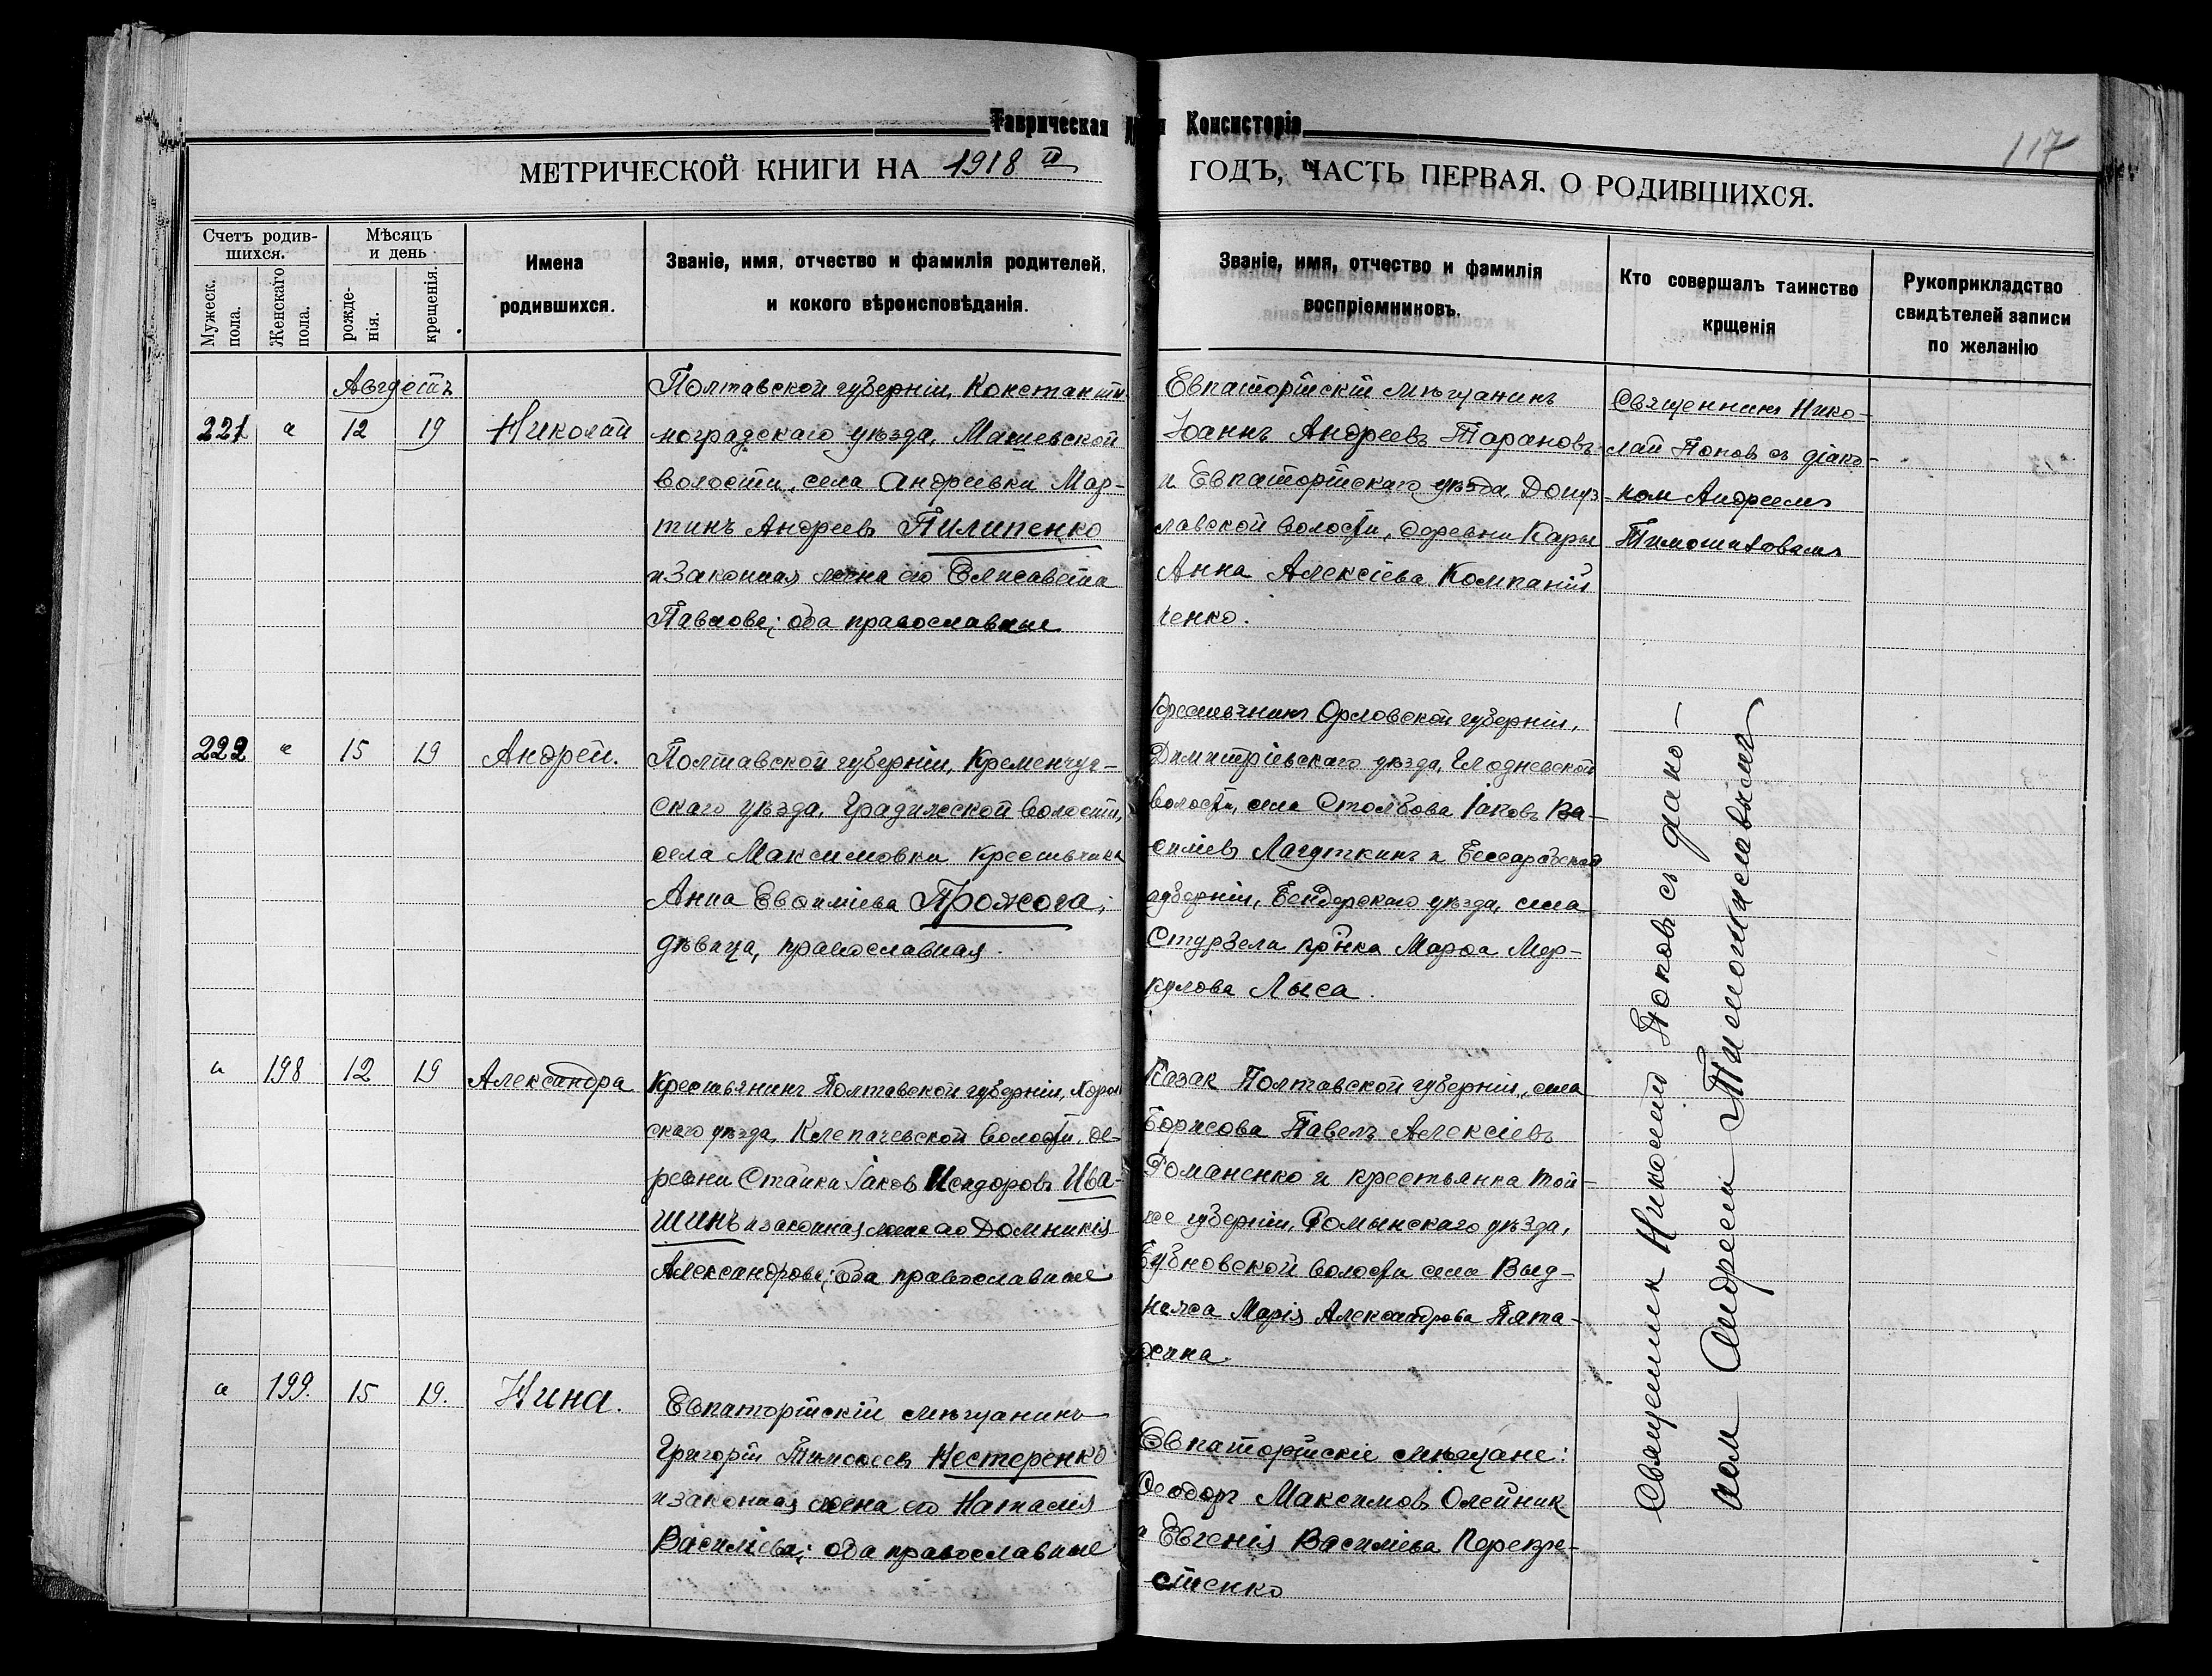 Таврическая
Консисторія
117
МЕТРИЧЕСКОЙ КНИГИ НА 1918 й
ГОДЪ, ЧАСТЬ ПЕРВАЯ. О РОДИВШИХСЯ.
Счетъ родив-
шихся.
Мужеск.
пола.
Женскаго
пола.
Мѣсяцъ
и день
рожде-
нія.
крещенія.
Имена
родившихся.
Званіе, имя, отчество и фамилія родителей,
и кокого вѣроисповѣданія.
Званіе, имя, отчество и фамилія
воспріемниковъ.
Кто совершалъ таинство
крщенія
Рукоприкладство
свидѣтелей записи
по желанію
Августъ
221 " 12 19 Николай
Полтавской губерніи, Константи-
ноградскаго уѣзда, Машевской
волости, села Андреевки Мар-
тинъ Андреевъ Пилипенко
и законная жена его Елисавета
Павлова; оба православные
Евпаторійскій мѣщанинъ
Іоаннъ Андреевъ Тарановъ
и Евпаторійскаго уѣзда, Донуз-
лавской волости, деревни
Анна Алексіева Компаній
ченко.
Священникъ Нико-
лай Попов съ діако-
ном Андреемъ
222 " 15 19 Андрей.
Полтавской губерніи, Кременчуг-
скаго уѣзда, Градижской волости,
села Максимовки крестьянка
Анна Евѳиміева Прожога;
дѣвица, православная.
Крестьянинъ Орловской губерніи,
Димитріевскаго уѣзда,
волости, села Столбова Іаковъ Ва-
силіевъ Лагуткинъ и Бессарабской
губерніи, Бендерскаго уѣзда, села
кр̃нка Марѳа Мер-
кулова Лыса.
" 198 12 19 Александра
Крестьянинъ Полтавской губерніи, Хороль
скаго уѣзда, Клепачевской волости, де-
ревни Стайки Іаков Исидоровъ Ива-
шинъ и законная жена его Домникія
Александрова; оба православные
Казак Полтавской губерніи, села
Борисова Павелъ Алексіевъ
Романенко и крестьянка той-
же губерніи, Роменскаго уѣзда,
Бубновской волости села
Марія Александрова Пята-
хина.
" 199. 15 19. Нина.
Евпаторійскій мѣщанинъ
Григорій Тимоѳеевъ Нестеренко
и законная жена его Наталія
Василіева; оба православные
Евпаторійскіе мѣщане:
Ѳеодоръ Максимовъ Олейник
и Евгенія Василіева Перекре-
стенко
Священник Николай Поповъ съ діако-
ном Андреем